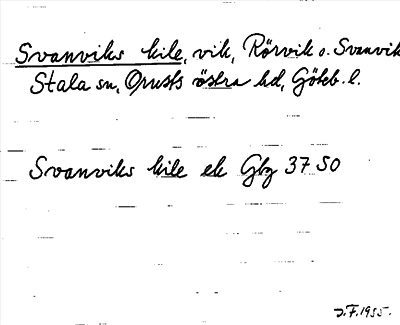 Svanviks kile, vik, Rörvik o. Svanvik
Stala sn, Orusts östra hd, Göteb. l.
Svanviks kile ek Gbg 37 SO
J.F. 1955.